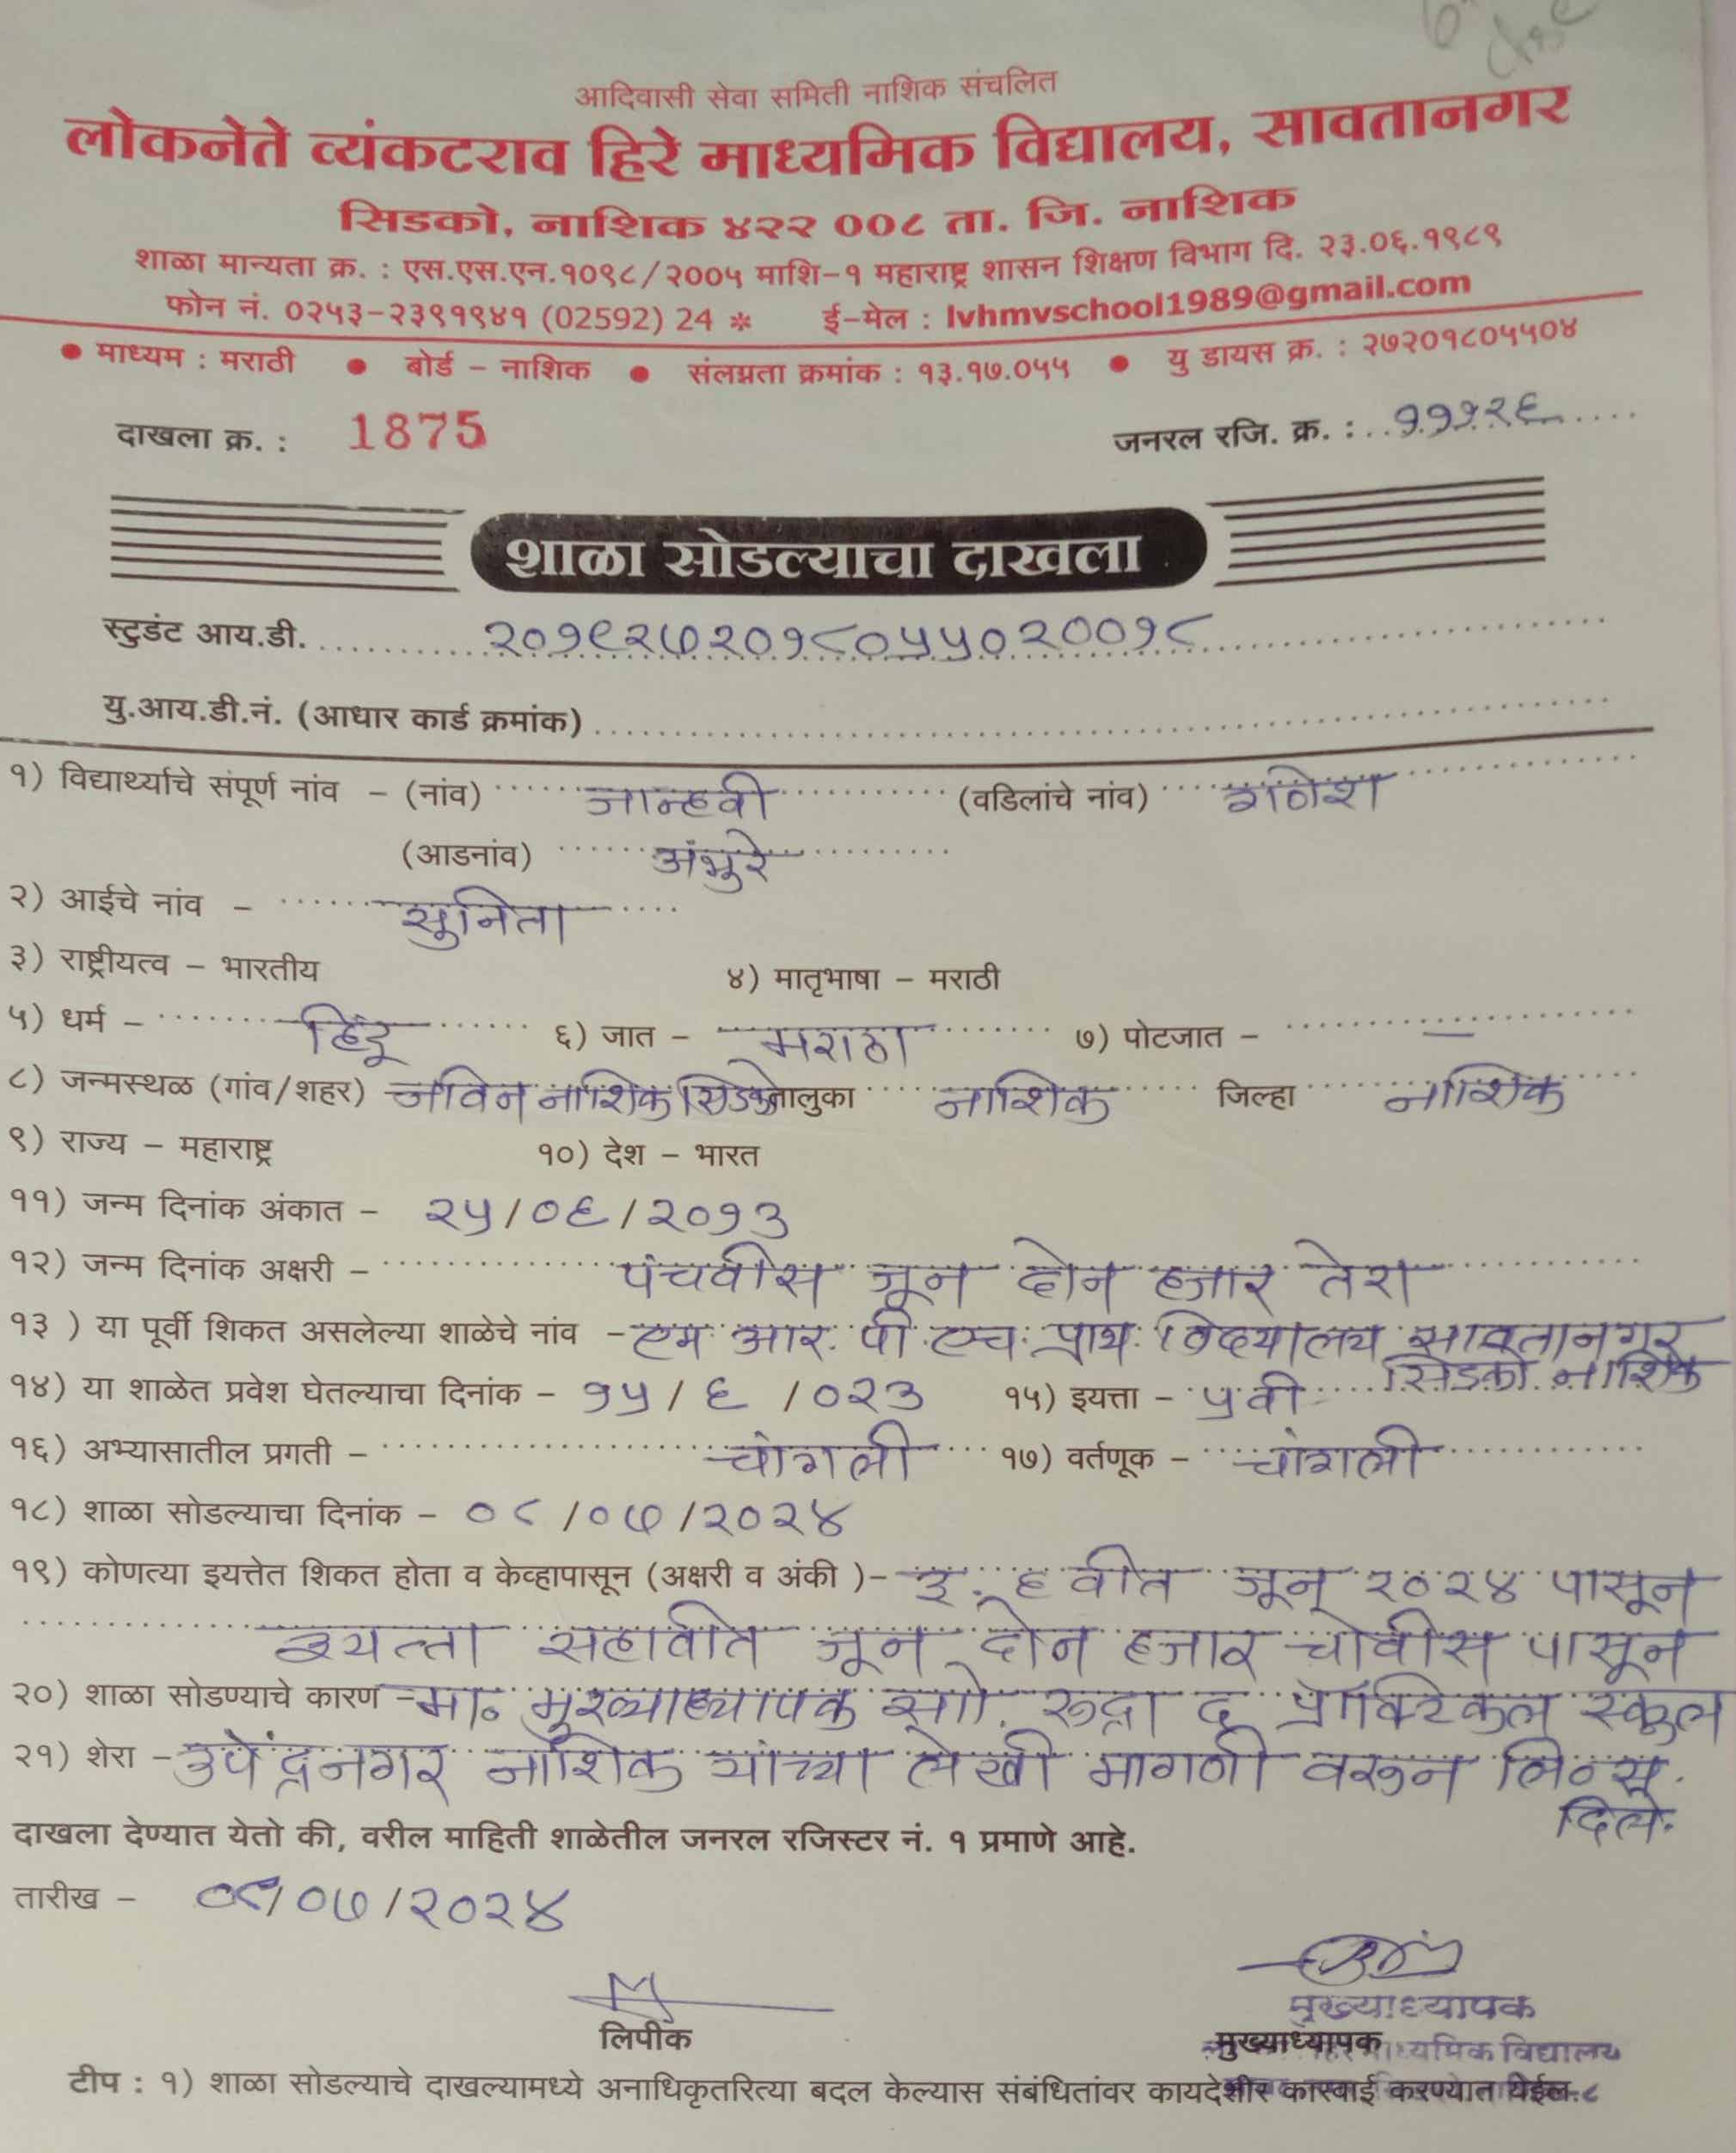 आदिवासी सेवा समिती नाशिक संचलित
लोकनेते व्यंकटराव हिरे माध्यमिक विद्यालय, सावतानगर
सिडको, नाशिक ४२२ ००८ ता. जि. नाशिक
शाळा मान्यता क्र. : एस.एस.एन.१०९८/२००५ माशि-१ महाराष्ट्र शासन शिक्षण विभाग दि. २३.०६.१९८९
फोन नं. ०२५३-२३९१९४१ (02592) 24 * ई-मेल : lvhmvschool1989@gmail.com
• माध्यम : मराठी • बोर्ड - नाशिक • संलग्नता क्रमांक : १३.१७.०५५ • यु डायस क्र. : २७२०१८०५५०४
दाखला क्र. : 1875 जनरल रजि. क्र. : ११९२६
शाळा सोडल्याचा दाखला
स्टुडंट आय.डी. २०१९२७२०१८०५५०२००१८
यु.आय.डी.नं. (आधार कार्ड क्रमांक)
१) विद्यार्थ्याचे संपूर्ण नांव - (नांव) जान्हवी (वडिलांचे नांव) गणेश
(आडनांव) अंभुरे
२) आईचे नांव - सुनिता
३) राष्ट्रीयत्व - भारतीय ४) मातृभाषा - मराठी
५) धर्म - हिंदू ६) जात - मराठा ७) पोटजात - —
८) जन्मस्थळ (गांव/शहर) नविन नाशिक सिडको तालुका नाशिक जिल्हा नाशिक
९) राज्य - महाराष्ट्र १०) देश - भारत
११) जन्म दिनांक अंकात - २५/०६/२०१३
१२) जन्म दिनांक अक्षरी - पंचवीस जून दोन हजार तेरा
१३ ) या पूर्वी शिकत असलेल्या शाळेचे नांव - एम. आर. पी. एच. प्राथ. विद्यालय सावतानगर
सिडको. नाशिक
१४) या शाळेत प्रवेश घेतल्याचा दिनांक - १५/६/०२३ १५) इयत्ता - ५ वी
१६) अभ्यासातील प्रगती - चांगली १७) वर्तणूक - चांगली
१८) शाळा सोडल्याचा दिनांक - ०८/०७/२०२४
१९) कोणत्या इयत्तेत शिकत होता व केव्हापासून (अक्षरी व अंकी )- इ. ६ वीत जून २०२४ पासून
इयत्ता सहावीत जून दोन हजार चोवीस पासून
२०) शाळा सोडण्याचे कारण - मा. मुख्याध्यापक सो. रुद्रा द प्रॅक्टिकल स्कुल
२१) शेरा - उपेंद्रनगर नाशिक यांच्या लेखी मागणी वरून
दिले.
दाखला देण्यात येतो की, वरील माहिती शाळेतील जनरल रजिस्टर नं. १ प्रमाणे आहे.
तारीख - ०९/०७/२०२४
मुख्याध्यापक
लिपीक मुख्याध्यापक
माध्यमिक विद्यालय
टीप : १) शाळा सोडल्याचे दाखल्यामध्ये अनाधिकृतरित्या बदल केल्यास संबंधितांवर कायदेशीर कारवाई करण्यात येईल.